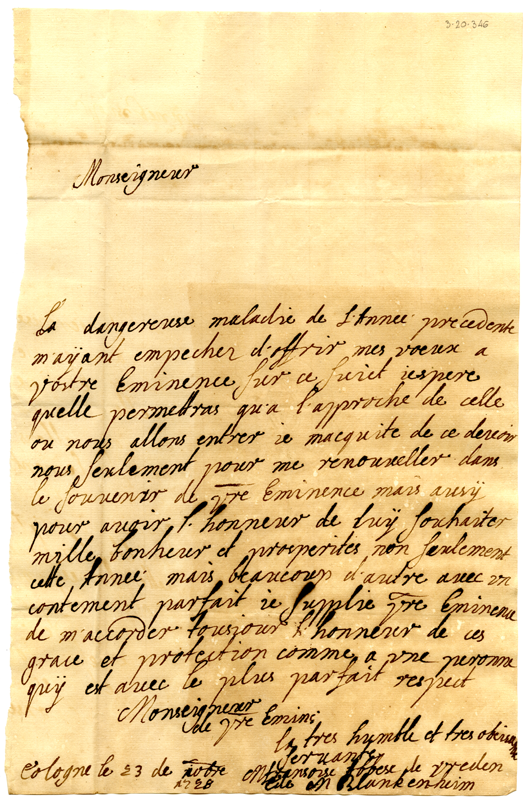 3-20-346
Monseigneur
La dangereuse maladie de l'Année precedente
m'ayant empecher d'offrir mes voeux a
vostre Eminence sur ce suiet iespere
quelle permettras qu'a l'approche de celle
ou nous allons entrer ie macquite de ce devoir
nous seulement pour me renouveller dans
le souvenir de vre Eminence mais ausÿ
pour avoir l'honneur de luÿ souhaiter
mille bonheur et prosperites non seulement
cette Année mais beaucoup d'autre avec un
contement parfait ie supplie vre Eminence
de m'accorder tousjour l'honneur de ces
grace et protection comme a une peronne
quÿ est avec le plus parfait respect
Monseigneur
de vre Emins:
la tres humble et tres obeis
servante
Cologne le 23 de
1728
fransoise Abbese de vreden
C de M Blankenheim